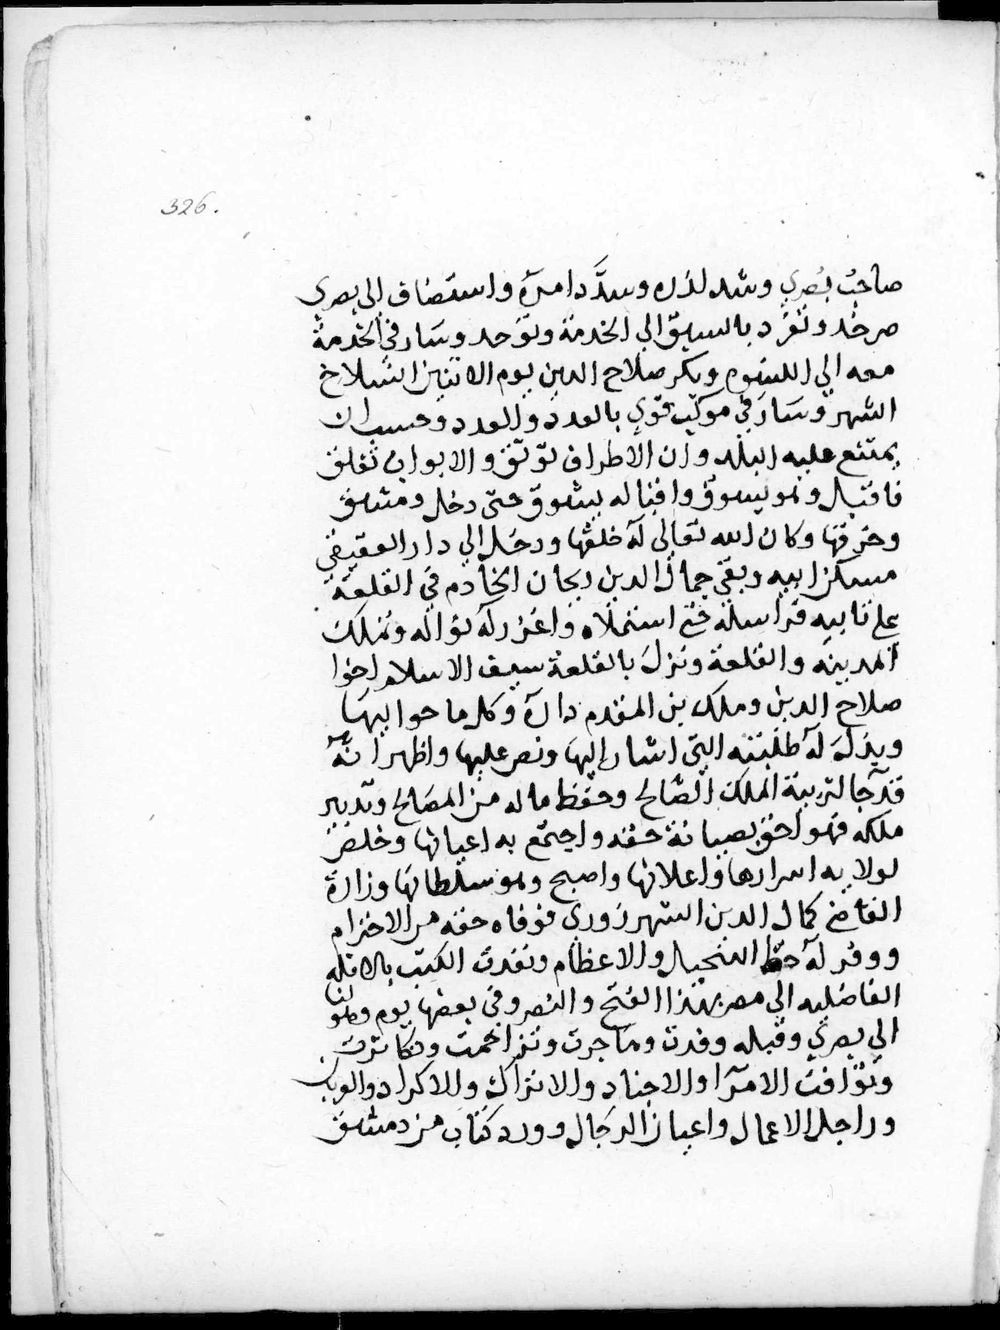 326.
صاحب بصري وشد لازره وسدد امره واستضاف الي بصري
صرخد وتفرد بالسبق الي الخدمة وتوحد وسار في الخدمة
معه الي الكسوه وبكر صلاح الدين يوم الاثنين انسلاخ
الشهر وسار في موكب قوي بالعدد والعدد وحسب ان
يمتنع عليه البلد وان الاطراف توثق والابواب تغلق
فاقبل وهو يسوق واقباله يشوق حتى دخل دمشق
وخرقها وكان الله تعالى له خلقها ودخل الي دار العقيقي
مسكن ابيه وبقي جمال الدين ريحان الخادم في القلعة
على تابيه فراسله حتى استماله واغزر له نواله وتملك
المدينه والقلعة ونزل بالقلعة سيف الاسلام اخوا
صلاح الدين وملك بن المقدم داره وكل ما حواليها
وبذل له طلبته التي اشار اليها ونص عليها واظهر انه
قد جا لتربية الملك الصالح وحفظ ماله من المصالح وتدبير
ملكه فهو احق بصيانة حقه واجتمع به اعيانها وخلص
لولايه اسرارها واعلانها واصبح وهو سلطانها وزاره
القاضي كمال الدين الشهرزوري فوفاه حقه من الاحترام
ووفر له حظ التبجيل والاعظام ونفدت الكتب بالاقلام
الفاضليه الي مصر بهذا الفتح والنصر وفي بعضها يوم وصولنا
الي بصري وقبله وفدت وهاجرت وتزاحمت وتكاثرت
وتوافت الامرا والاجناد والاتراك والاكراد والعربان
وراجل الاعمال واعيان الرجال وورد كتاب من دمشق